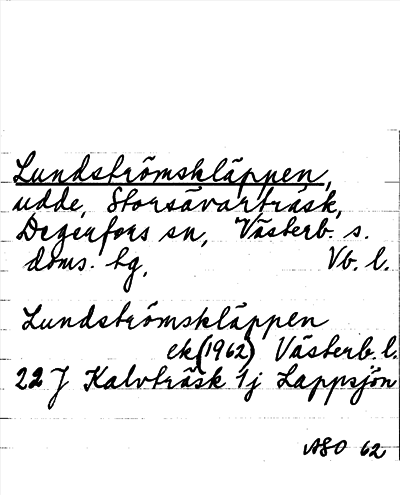 Lundströmskläppen,
udde, Storsävarträsk,
Degerfors sn, Västerb. s.
doms. tg, Vb. l.
Lundströmskläppen
ek (1962) Västerb. l.
22 J Kalvträsk 1j Lappsjön
ASO 62